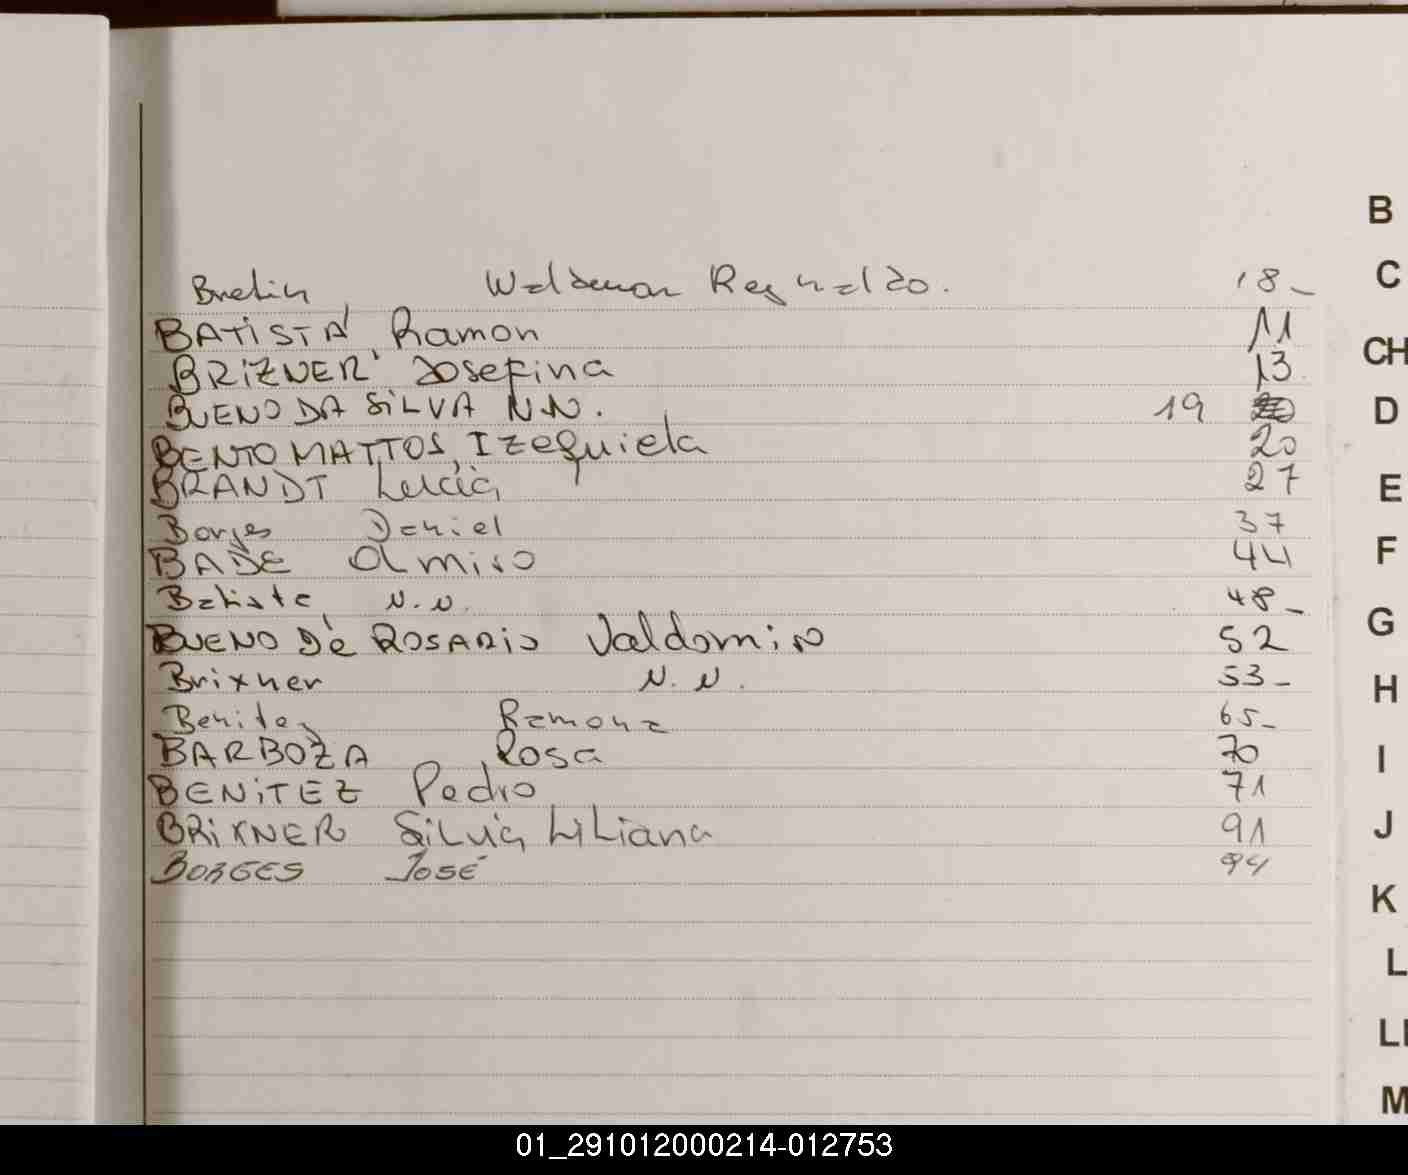 Waldemar Reynaldo. 18_
BATISTA, Ramon 11
BRIZNER, Josefina 13
BUENO DA SILVA N.N. 19
BENTO MATTOS, Izequiela 20
BRANDT Lucia 27
Borges Daniel 37
BADE Olmiro 44
Batista N.N. 48_
BUENO DE ROSARIO Valdomiro 52
Brixner N.N. 53_
Benitez Ramona 65_
BARBOZA Rosa 70
BENITEZ Pedro 71
BRIXNER Silvia Liliana 91
BORGES José 94
B
C
CH
D
E
F
G
H
I
J
K
L
LL
M
01_291012000214-012753